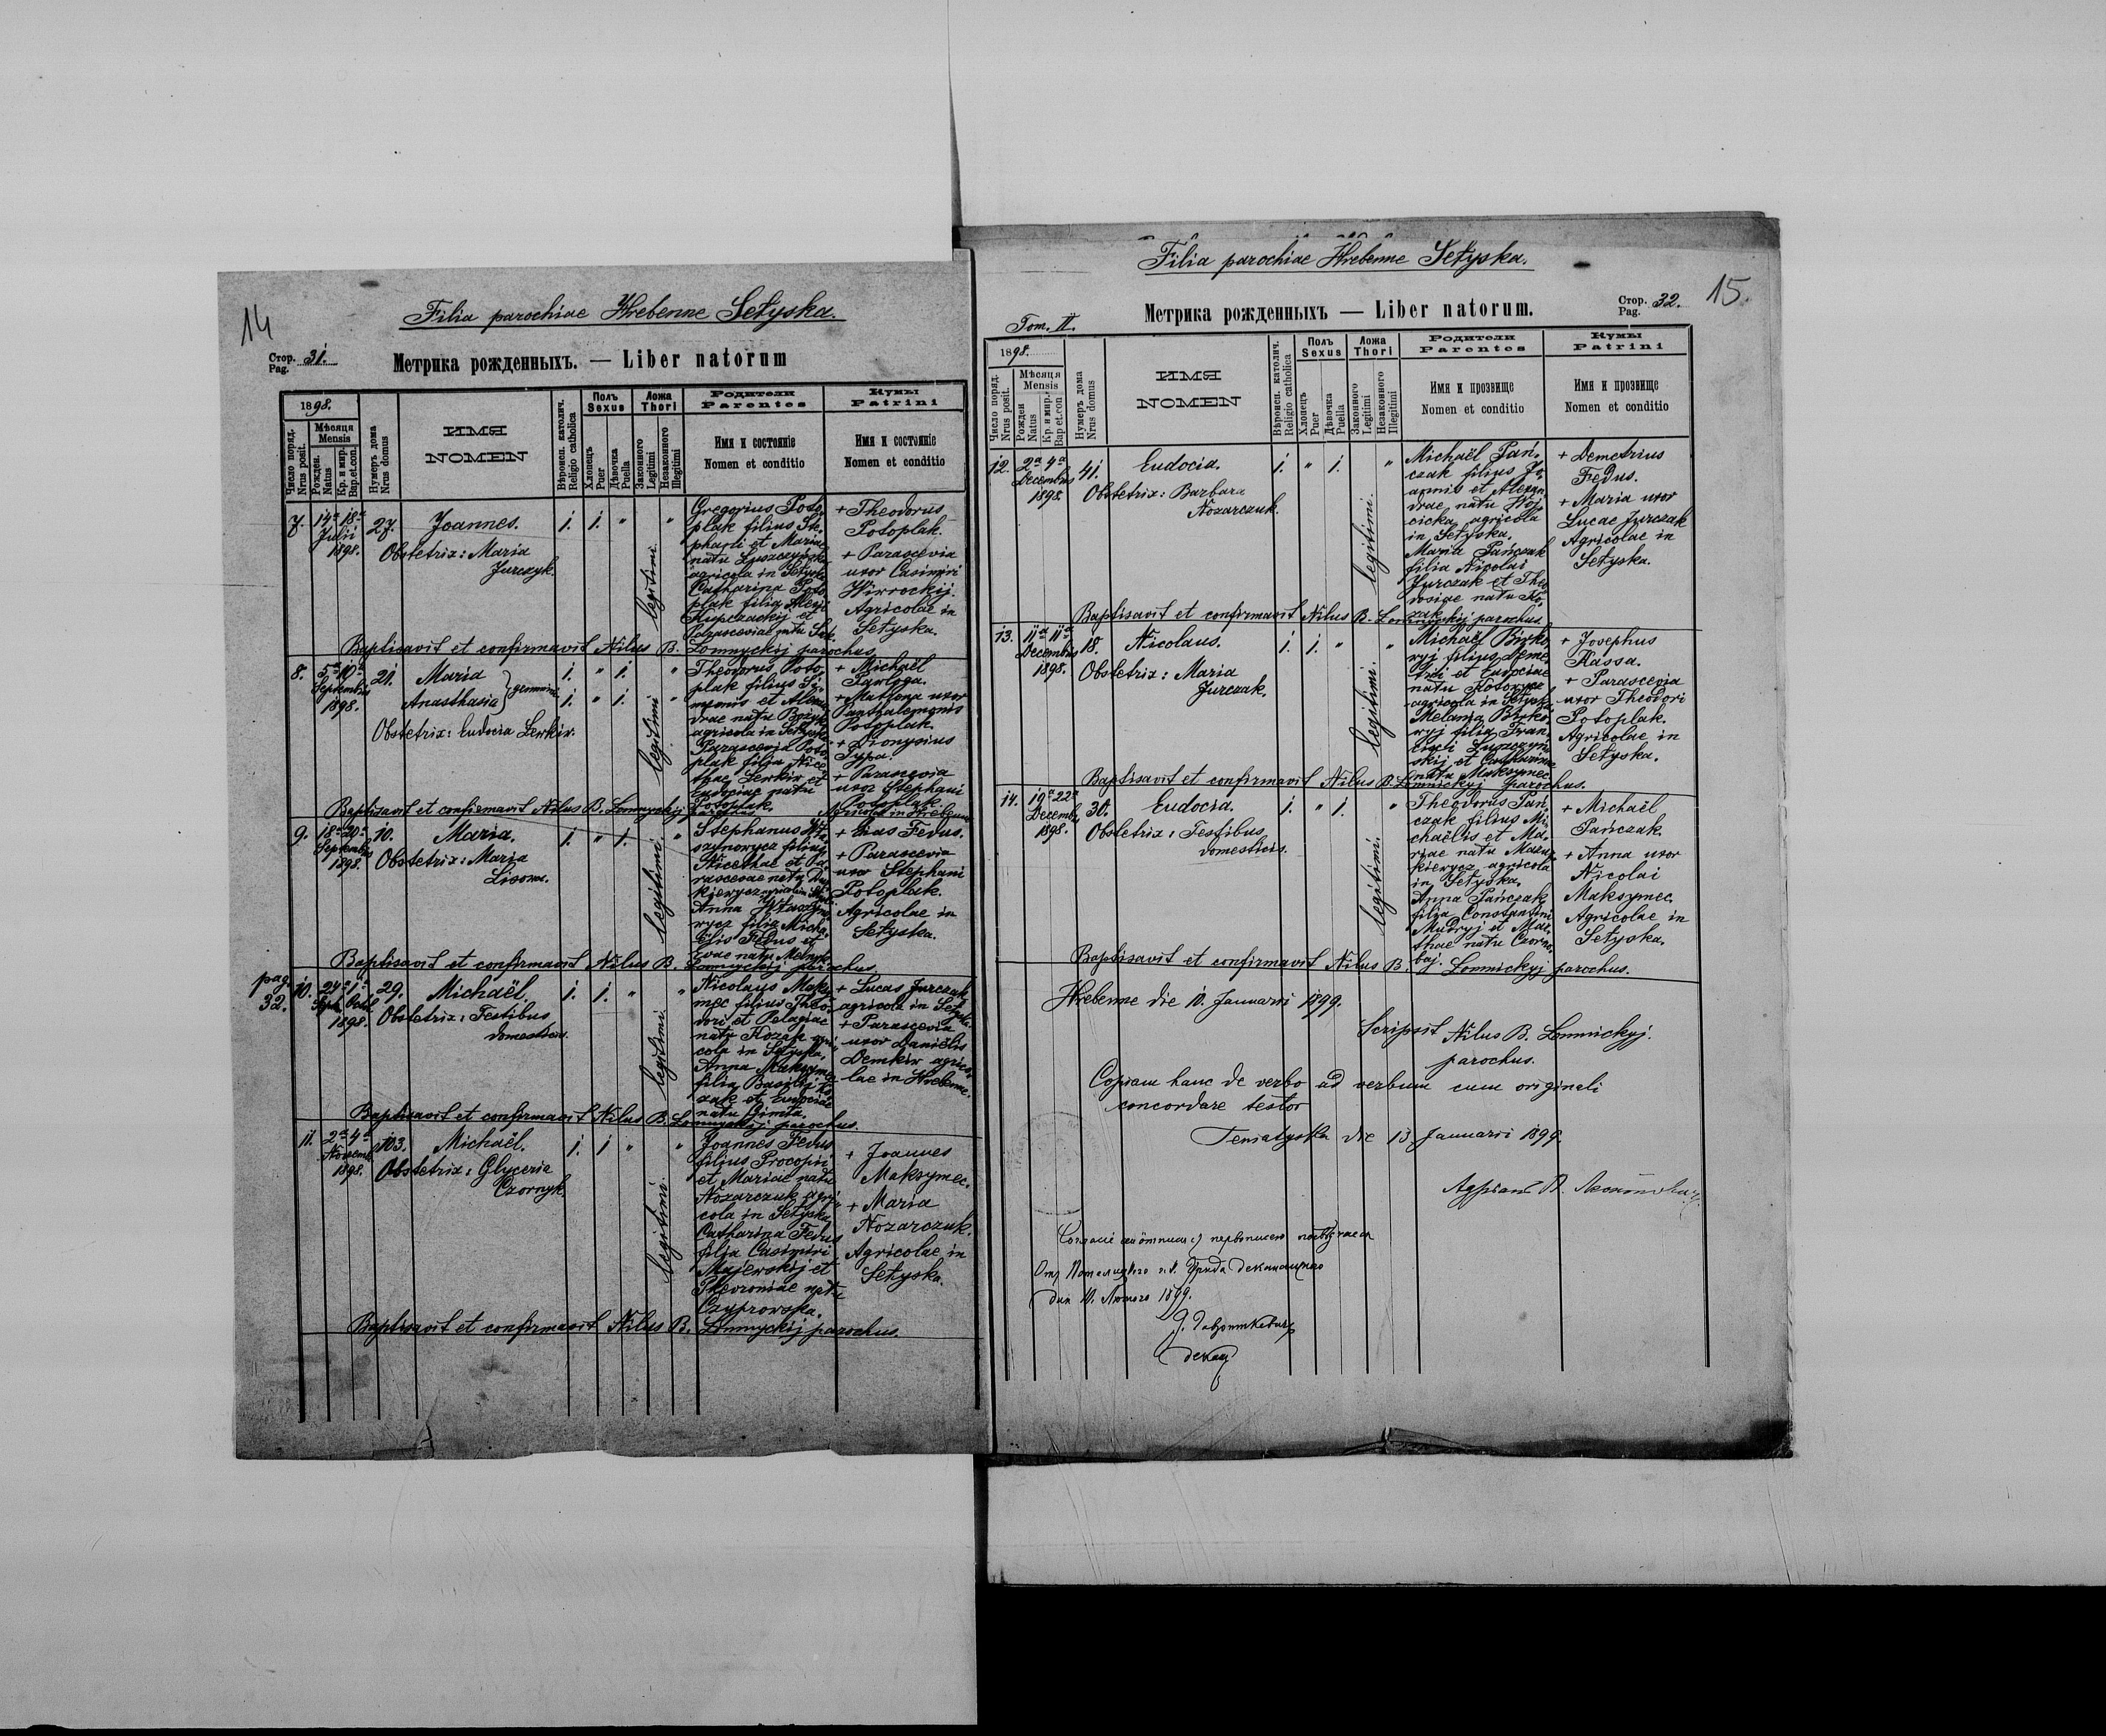 14
Filia parochiae Hrebenne Setyska.
Стор. Pag. 31.
Метрика рожденныхъ. — Liber natorum
1898.
Число поряд. Nrus posit.
Мѣсяця Mensis
Рожден. Natus
Кр. и мир. Bap.et.con.
Нумеръ дома Nrus domus
ИМЯ
NOMEN
Вѣроисп. католич. Religio catholica
Полъ Sexus
Хлопецъ Puer
Дѣвочка Puella
Ложа Thori
Законного Legitimi
Незаконного Illegitimi
Родители
Parentes
Имя и состоянíе
Nomen et conditio
Кумы
Patrini
Имя и состоянíе
Nomen et conditio
7. 14a 18a Julii 1898. 27. Joannes. 1. 1. " legitimi "
Obstetrix: Maria
Jurczyk.
Gregorius Poto
plak filius Ste
phani et Mariae
natu Luszczyńska
agricola in Setyska
Catharina Poto
plak filia Alexii
Kupczackij et
Parasceviae natu
+ Theodorus
Potoplak.
+ Parascevia
uxor Casimiri
Wirrockij.
Agricolae in
Setyska.
Baptisavit et confirmavit Nilus B. Lomnyckij parochus.
8. 5a 10a Septembris 1898. 21. Maria 1. " 1. legitimi "
Anasthasia } gemini 1. " 1.
Obstetrix: Eudocia Serkiw.
Theodorus Poto
plak filius Si
meonis et Alexan
drae natu
agricola in Setyska
Parascevia Poto
plak filia Nice
thae Serkiw et
Eudociae natu
Potoplak.
+ Michaël
Pawloga.
+ Matrona uxor
Pantalemonis
Potoplak.
+ Dionysius
Typa.
+ Parascevia
uxor Stephani
Potoplak.
Agricolae in Hrebenne
Baptisavit et confirmavit Nilus B. Lomnyckij parochus.
9. 18a 20a Septembris 1898. 10. Maria. 1. " 1. legitimi "
Obstetrix: Maria
Lisowa.
Stephanus
filius
Nicethae et Pa
rasceviae natu
Anna
rycz filia Micha
ëlis Fedus et
Evae natu Melnyk.
+ Elias Fedus.
+ Parascevia
uxor Stephani
Potoplak.
Agricolae in
Setyska.
Baptisavit et confirmavit Nilus B. Lomnyckij parochus.
pag. 32.
10. 24a 1a Sept. Octob. 1898. 29. Michaël. 1. 1. " legitimi "
Obstetrix: Testibus
domesticis.
Nicolaus Maksy
mec filius Theo
dori et Pelagiae
natu Kozak agri
cola in Setyska,
Anna Maksymec
filia Basilij Ko
zak et Eudociae
natu Gimta.
+ Lucas Jurczak
agricola in Setyska.
+ Parascevia
uxor Daniëlis
Demkiw agrico
lae in Hrebenne.
Baptisavit et confirmavit Nilus B. Lomnyckij parochus.
11. 2a 4a Novemb. 1898. 103. Michaël. 1. 1 " legitimi "
Obstetrix: Glyceria
Czornyk.
Joannes Fedus
filius Procopii
et Mariae natu
Nozarczuk agri
cola in Setyska
Catharina Fedus
filia Casimiri
Majewskij et
Phevroniae natu
Czyprowska.
+ Joannes
Maksymec.
+ Maria
Nozarczuk.
Agricolae in
Setyska.
Baptisavit et confirmavit Nilus B. Lomnyckij parochus.
Filia parochiae Hrebenne Setyska.
15.
Tom. II.
Метрика рожденныхъ — Liber natorum.
Стор. Pag. 32.
1898.
Число поряд. Nrus posit.
Мѣсяця Mensis
Рожден Natus
Кр. и мир. Bap et.con
Нумеръ дома Nrus domus
ИМЯ
NOMEN
Вѣроисп. католич. Religio catholica
Полъ Sexus
Хлопець Puer
Дѣвочка Puella
Ложа Thori
Законного Legitimi
Незаконного Illegitimi
Родители
Parentes
Имя и прозвище
Nomen et conditio
Кумы
Patrini
Имя и прозвище
Nomen et conditio
12. 2a 4a Decembris 1898. 41. Eudocia. 1. " 1. legitimi. "
Obstetrix: Barbara
Nozarczuk.
Michaël Pań
czak filius Jo
annis et Alexan
drae natu Woj
cicka, agricola
in Setyska.
Maria Pańczak
filia Nicolai
Jurczak et Theo
dosiae natu Ko
zak
+ Demetrius
Fedus.
+ Maria uxor
Lucae Jurczak
Agricolae in
Setyska.
Baptisavit et confirmavit Nilus B. Lomnyckij parochus.
13. 11a 11a Decembris 1898. 18. Nicolaus. 1. 1. " legitimi. "
Obstetrix: Maria
Jurczak.
Michaël Birko
wyj filius Deme
trii et Eudociae
natu Kotowycz
agricola in Setyska
Melania Birko
wyj filia Fran
cisci Luszczyń
skij et Catharina
natu Maksymec
+ Josephus
Kassa.
+ Parascevia
uxor Theodori
Potoplak.
Agricolae in
Setyska.
Baptisavit et confirmavit Nilus B. Lomnickyj parochus.
14. 19a 22a Decemb. 1898. 30. Eudocia. 1. " 1. legitimi. "
Obstetrix: Testibus
domesticis.
Theodorus Pań
czak filius Mi
chaëlis et Ma
riae natu Mazur
kiewycz agricola
in Setyska.
Anna Pańczak
filia Constantini
Mudryj et Mar
thae natu Czorno
baj.
+ Michaël
Pańczak.
+ Anna uxor
Nicolai
Maksymec.
Agricolae in
Setyska.
Baptisavit et confirmavit Nilus B. Lomnickyj parochus.
Hrebenne die 10. Januarii 1899.
Scripsit Nilus B. Lomnickyj.
parochus.
Copiam hanc de verbo ad verbum cum originali
concordare testor
Teniatyska die 13 Januarii 1899.
дня 10. Лютого 1899.
декан